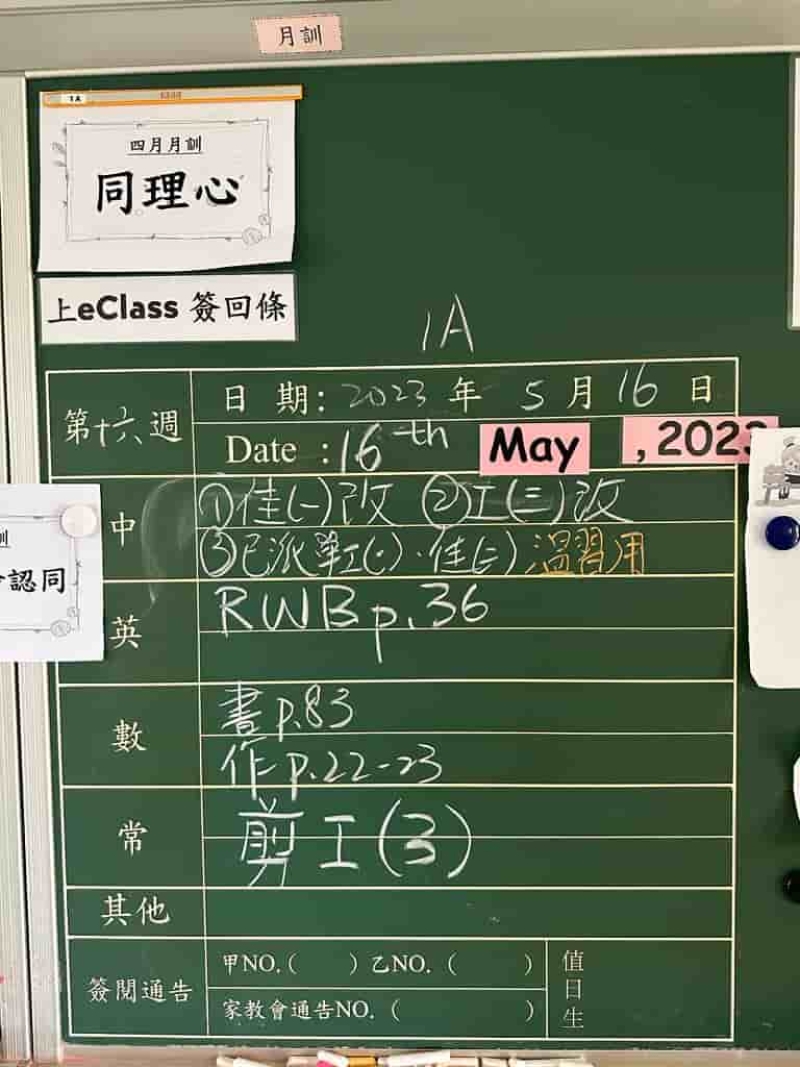 月訓
1A
四月月訓
同理心
上eClass 簽回條
1A
第十六週
日 期: 2023 年 5 月 16 日
Date : 16th May , 2023
中
①佳(一)改 ②工(二)改
③已派單工(一)、佳(二)溫習用
認同
英
RWB p.36
數
書 p.83
作 p.22-23
常
剪工(3)
其他
簽閱通告
甲NO.( ) 乙NO. ( )
家教會通告NO. ( )
值日生